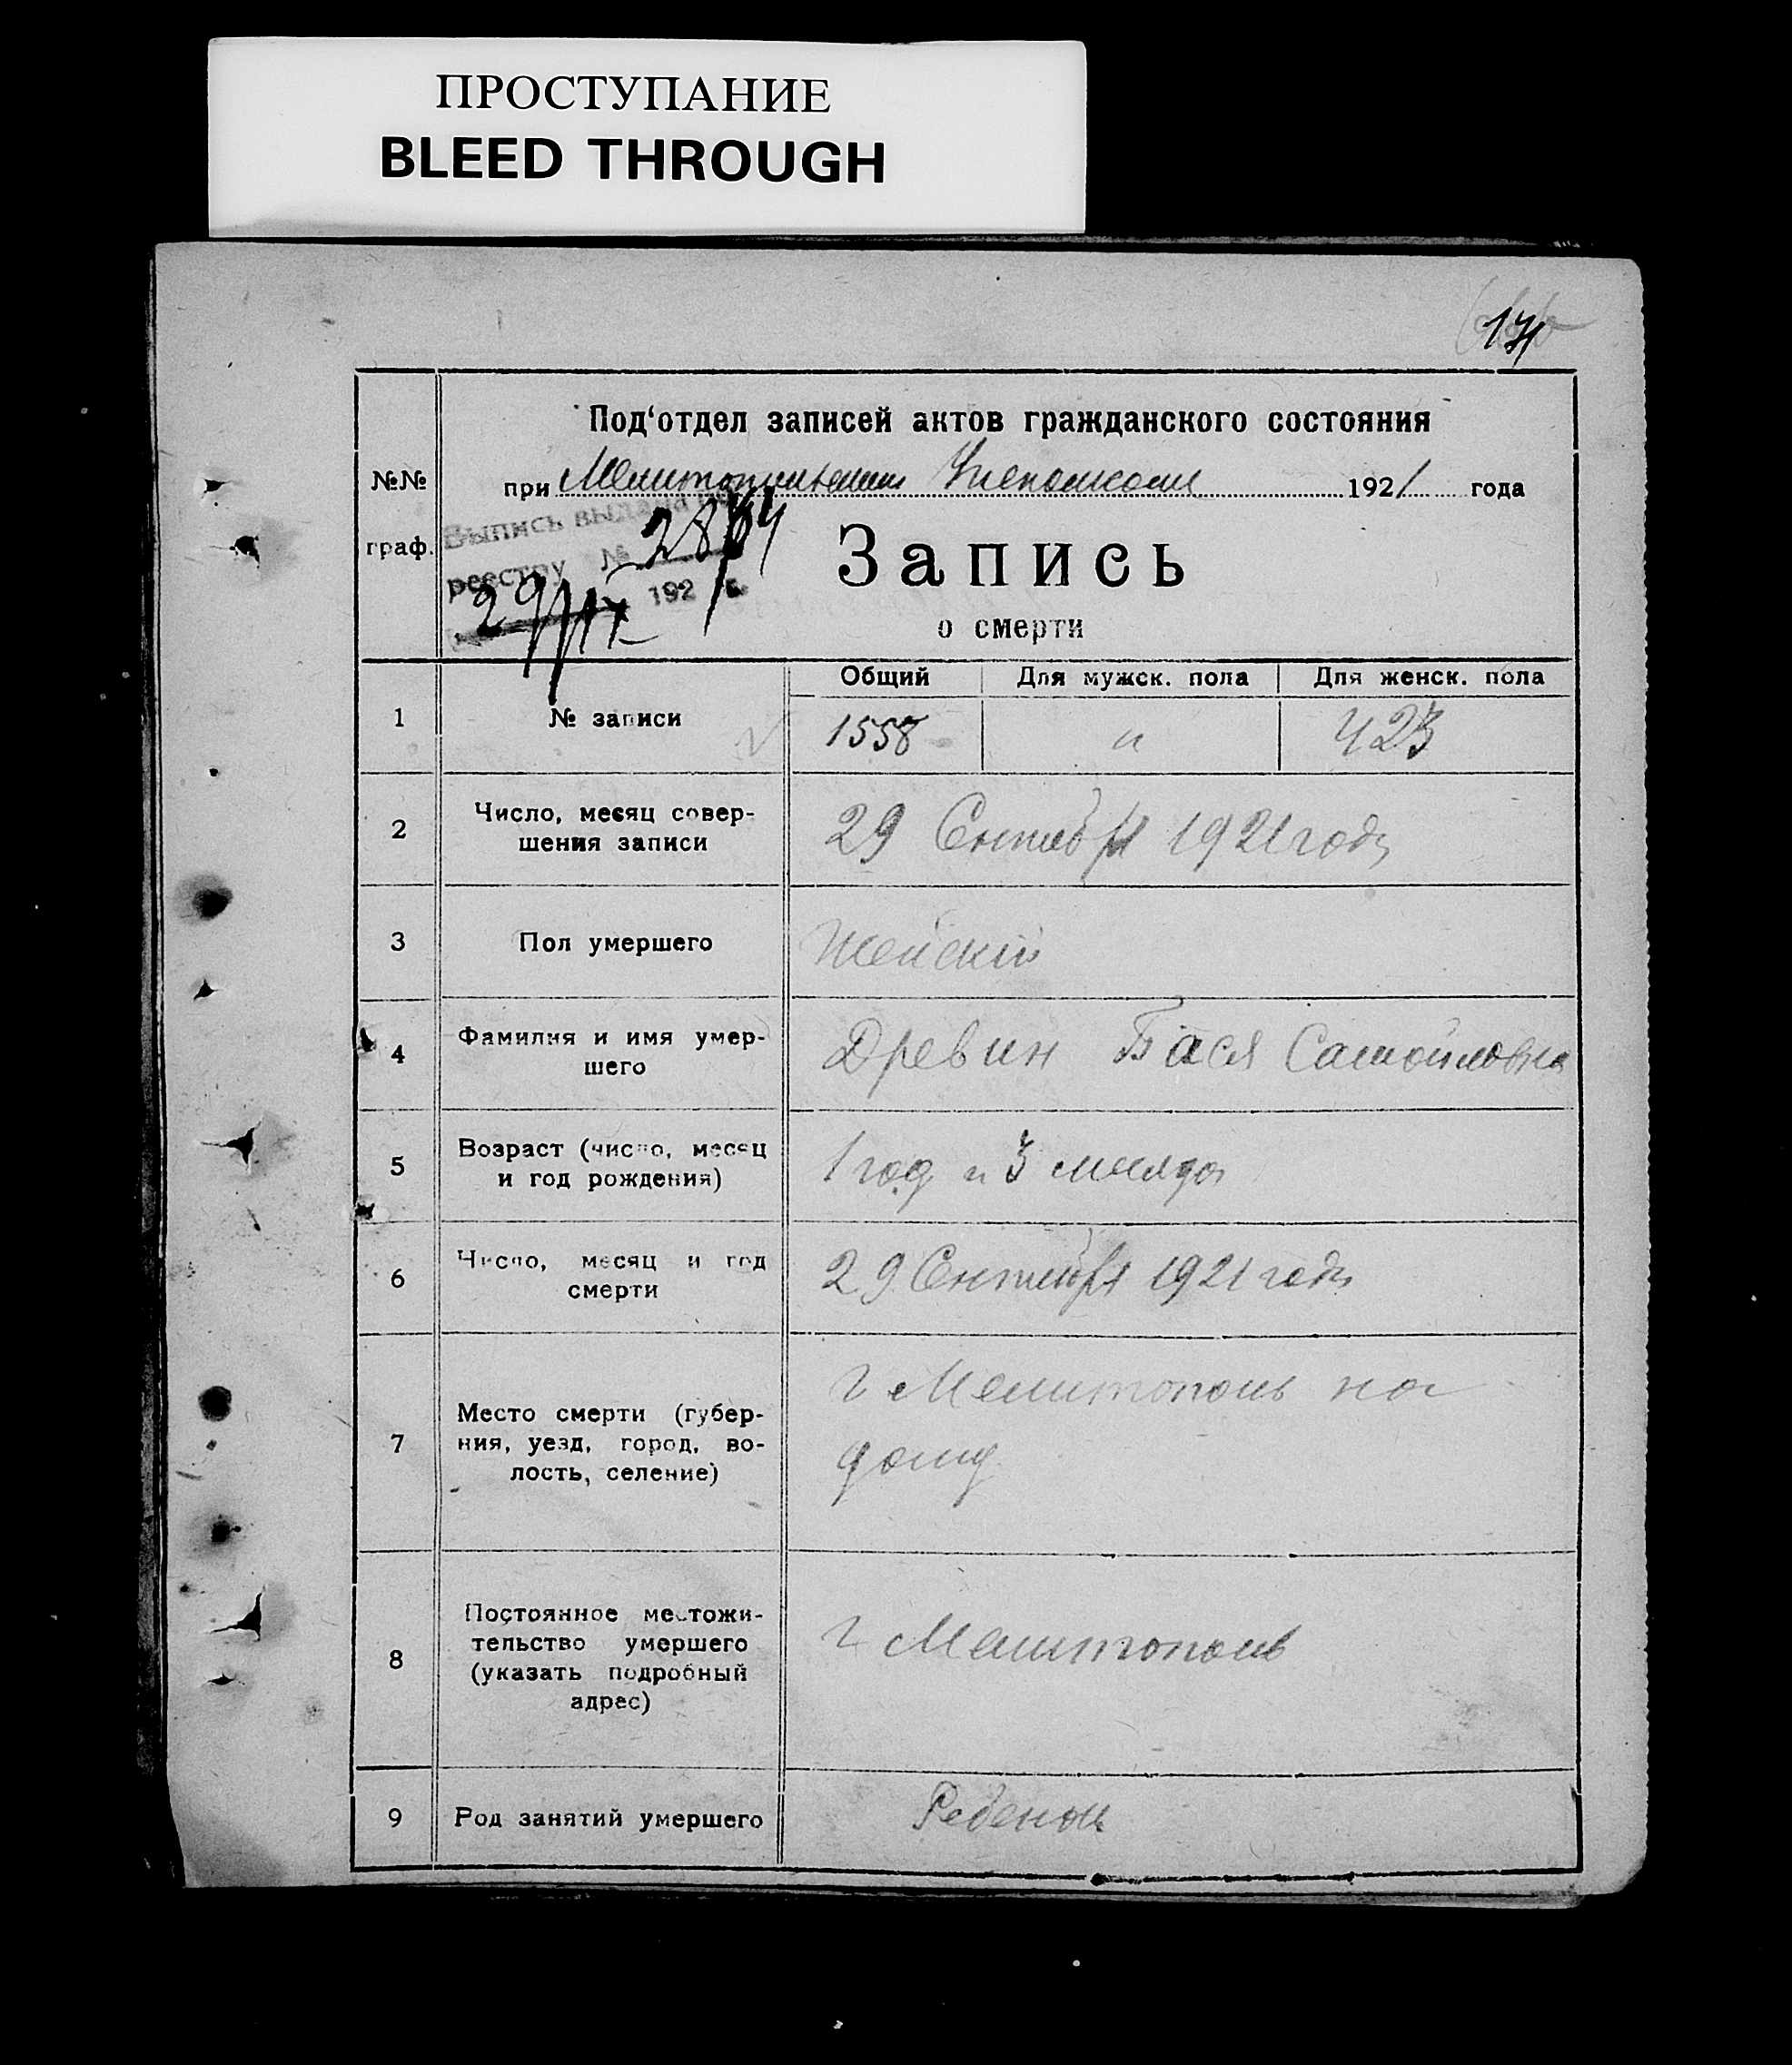 ПРОСТУПАНИЕ
BLEED THROUGH
171
Под‘отдел записей актов гражданского состояния
№№
граф.
при Мелитопольским Уисполкоме 1921 года
Выпись выдана по
реестру № 2864
29/IX 192 г.
Запись
о смерти
Общий Для мужск. пола Для женск. пола
1 № записи 1558 " 423
2 Число, месяц совер-
шения записи 29 Сентября 1921 года
3 Пол умершего Женскій
4 Фамилия и имя умер-
шего Древин Бася Самойловна
5 Возраст (число, месяц
и год рождения) 1 год и 3 месяца
6 Число, месяц и год
смерти 29 Сентября 1921 года
7 Место смерти (губер-
ния, уезд, город, во-
лость, селение) г Мелитополь на
дому
8 Постоянное местожи-
тельство умершего
(указать подробный
адрес) г Мелитополь
9 Род занятий умершего Ребенок